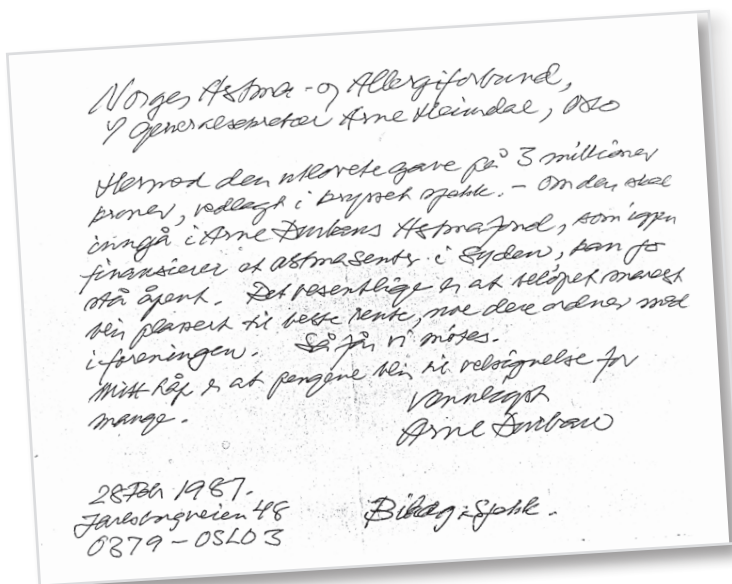 Norges Astma- og Allergiforbund,
v/ generalsekretær Arne Heimdal, Oslo
Hermed den utlovete gave på 3 millioner
kroner, vedlagt i krysset sjekk. - Om den skal
inngå i Arne Durbans Astmafond, som igjen
finansierer et astmasenter i Syden, kan jo
stå åpent. Det vesentlige er at beløpet snarest
blir plassert til beste rente, noe dere ordner med
i foreningen. Så får vi møtes.
Mitt håp er at pengene blir til velsignelse for
mange.
Vennligst
Arne Durban
28 Feb 1987.
Jarlsborgveien 48
0379 - OSLO 3
Bilag: Sjekk.